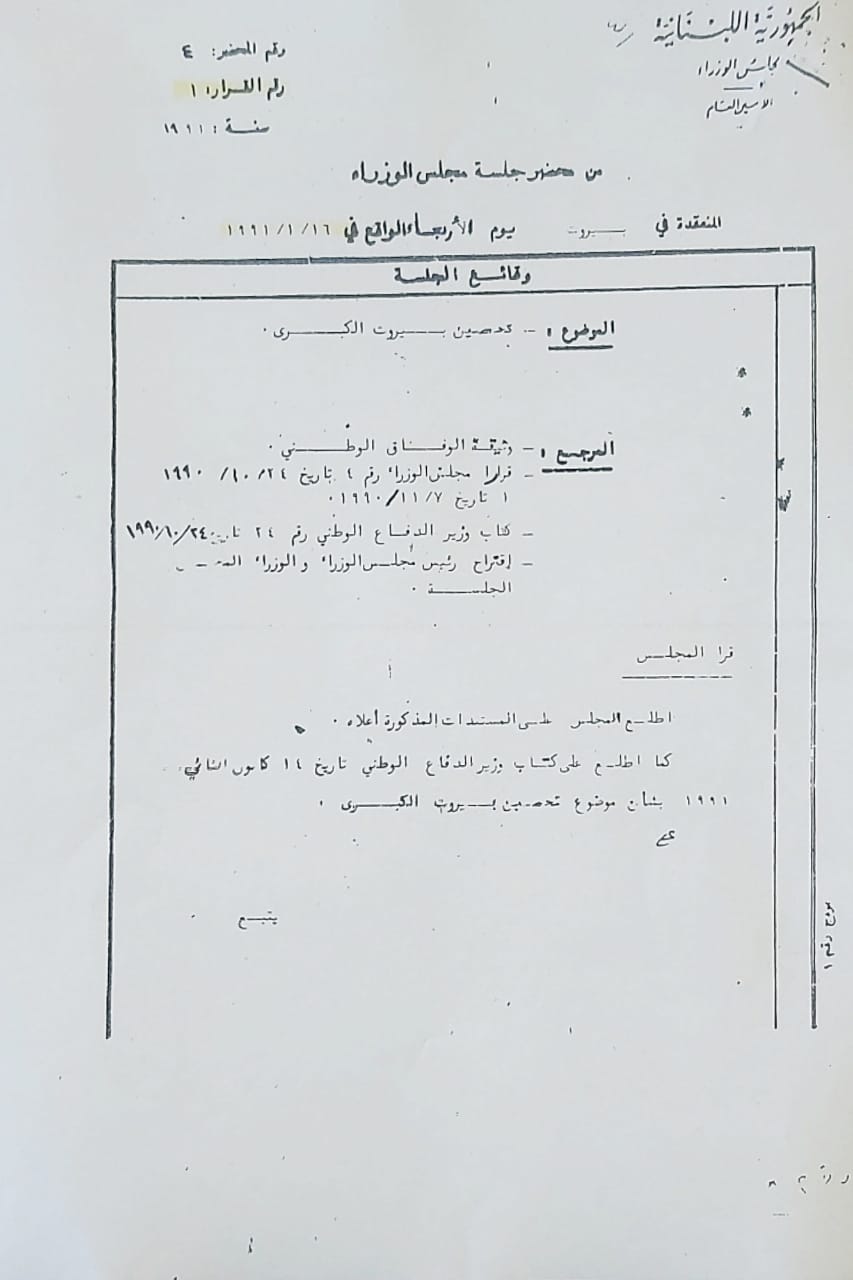 الجمهورية اللبنانية
مجلس الوزراء
الأمين العام
رقم المحضر: ٤
رقم القرار: ١
سنة: ١٩٩١
من محضر جلسة مجلس الوزراء
المنعقدة في بيروت يوم الأربعاء الواقع في ١٩٩١/١/١٦
وقائع الجلسة
الموضوع: - تحصين بيروت الكبرى.
المرجع: - وثيقة الوفاق الوطني.
- قرارا مجلس الوزراء رقم ٤ تاريخ ١٩٩٠/١٠/٢٤
١ تاريخ ١٩٩٠/١١/٧.
- كتاب وزير الدفاع الوطني رقم ٢٤ تاريخ ١٩٩٠/١٠/٢٤
- إقتراح رئيس مجلس الوزراء والوزراء
الجلسة.
قرار المجلس
اطلع المجلس على المستندات المذكورة أعلاه.
كما اطلع على كتاب وزير الدفاع الوطني تاريخ ١٤ كانون الثاني
١٩٩١ بشأن موضوع تحصين بيروت الكبرى.
يتبع
نموذج رقم ١